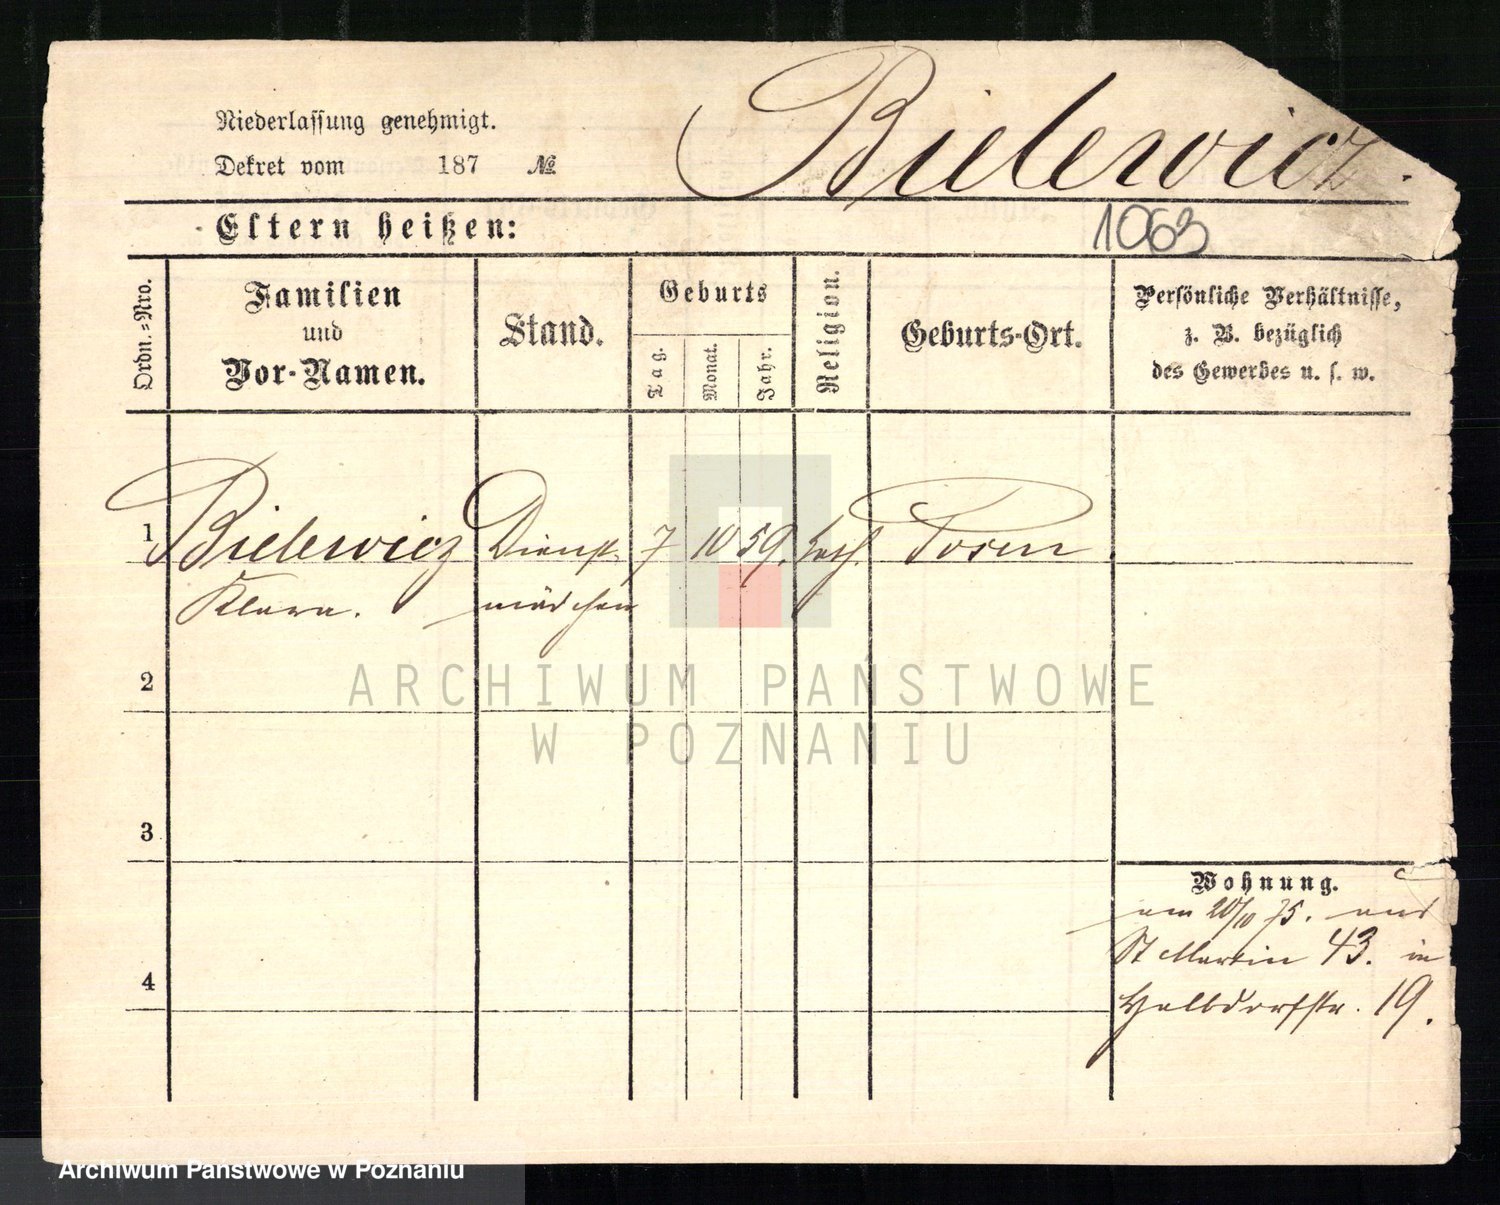 Niederlassung genehmigt.
Dekret vom 187 №
Bielewicz.
Eltern heißen:
1063
Ordn.-Nro.
Familien
und
Vor-Namen.
Stand.
Geburts
Tag.
Monat.
Jahr.
Religion.
Geburts-Ort.
Persönliche Verhältnisse,
z. B. bezüglich
des Gewerbes u. s. w.
1 Bielewicz Dienst- 7 10 59. kath. Posen.
Klara. mädchen
2
3
4
Wohnung.
am 20/10 75. aus
St Martin 43. in
Halbdorfstr. 19.
ARCHIWUM PAŃSTWOWE
W POZNANIU
Archiwum Państwowe w Poznaniu